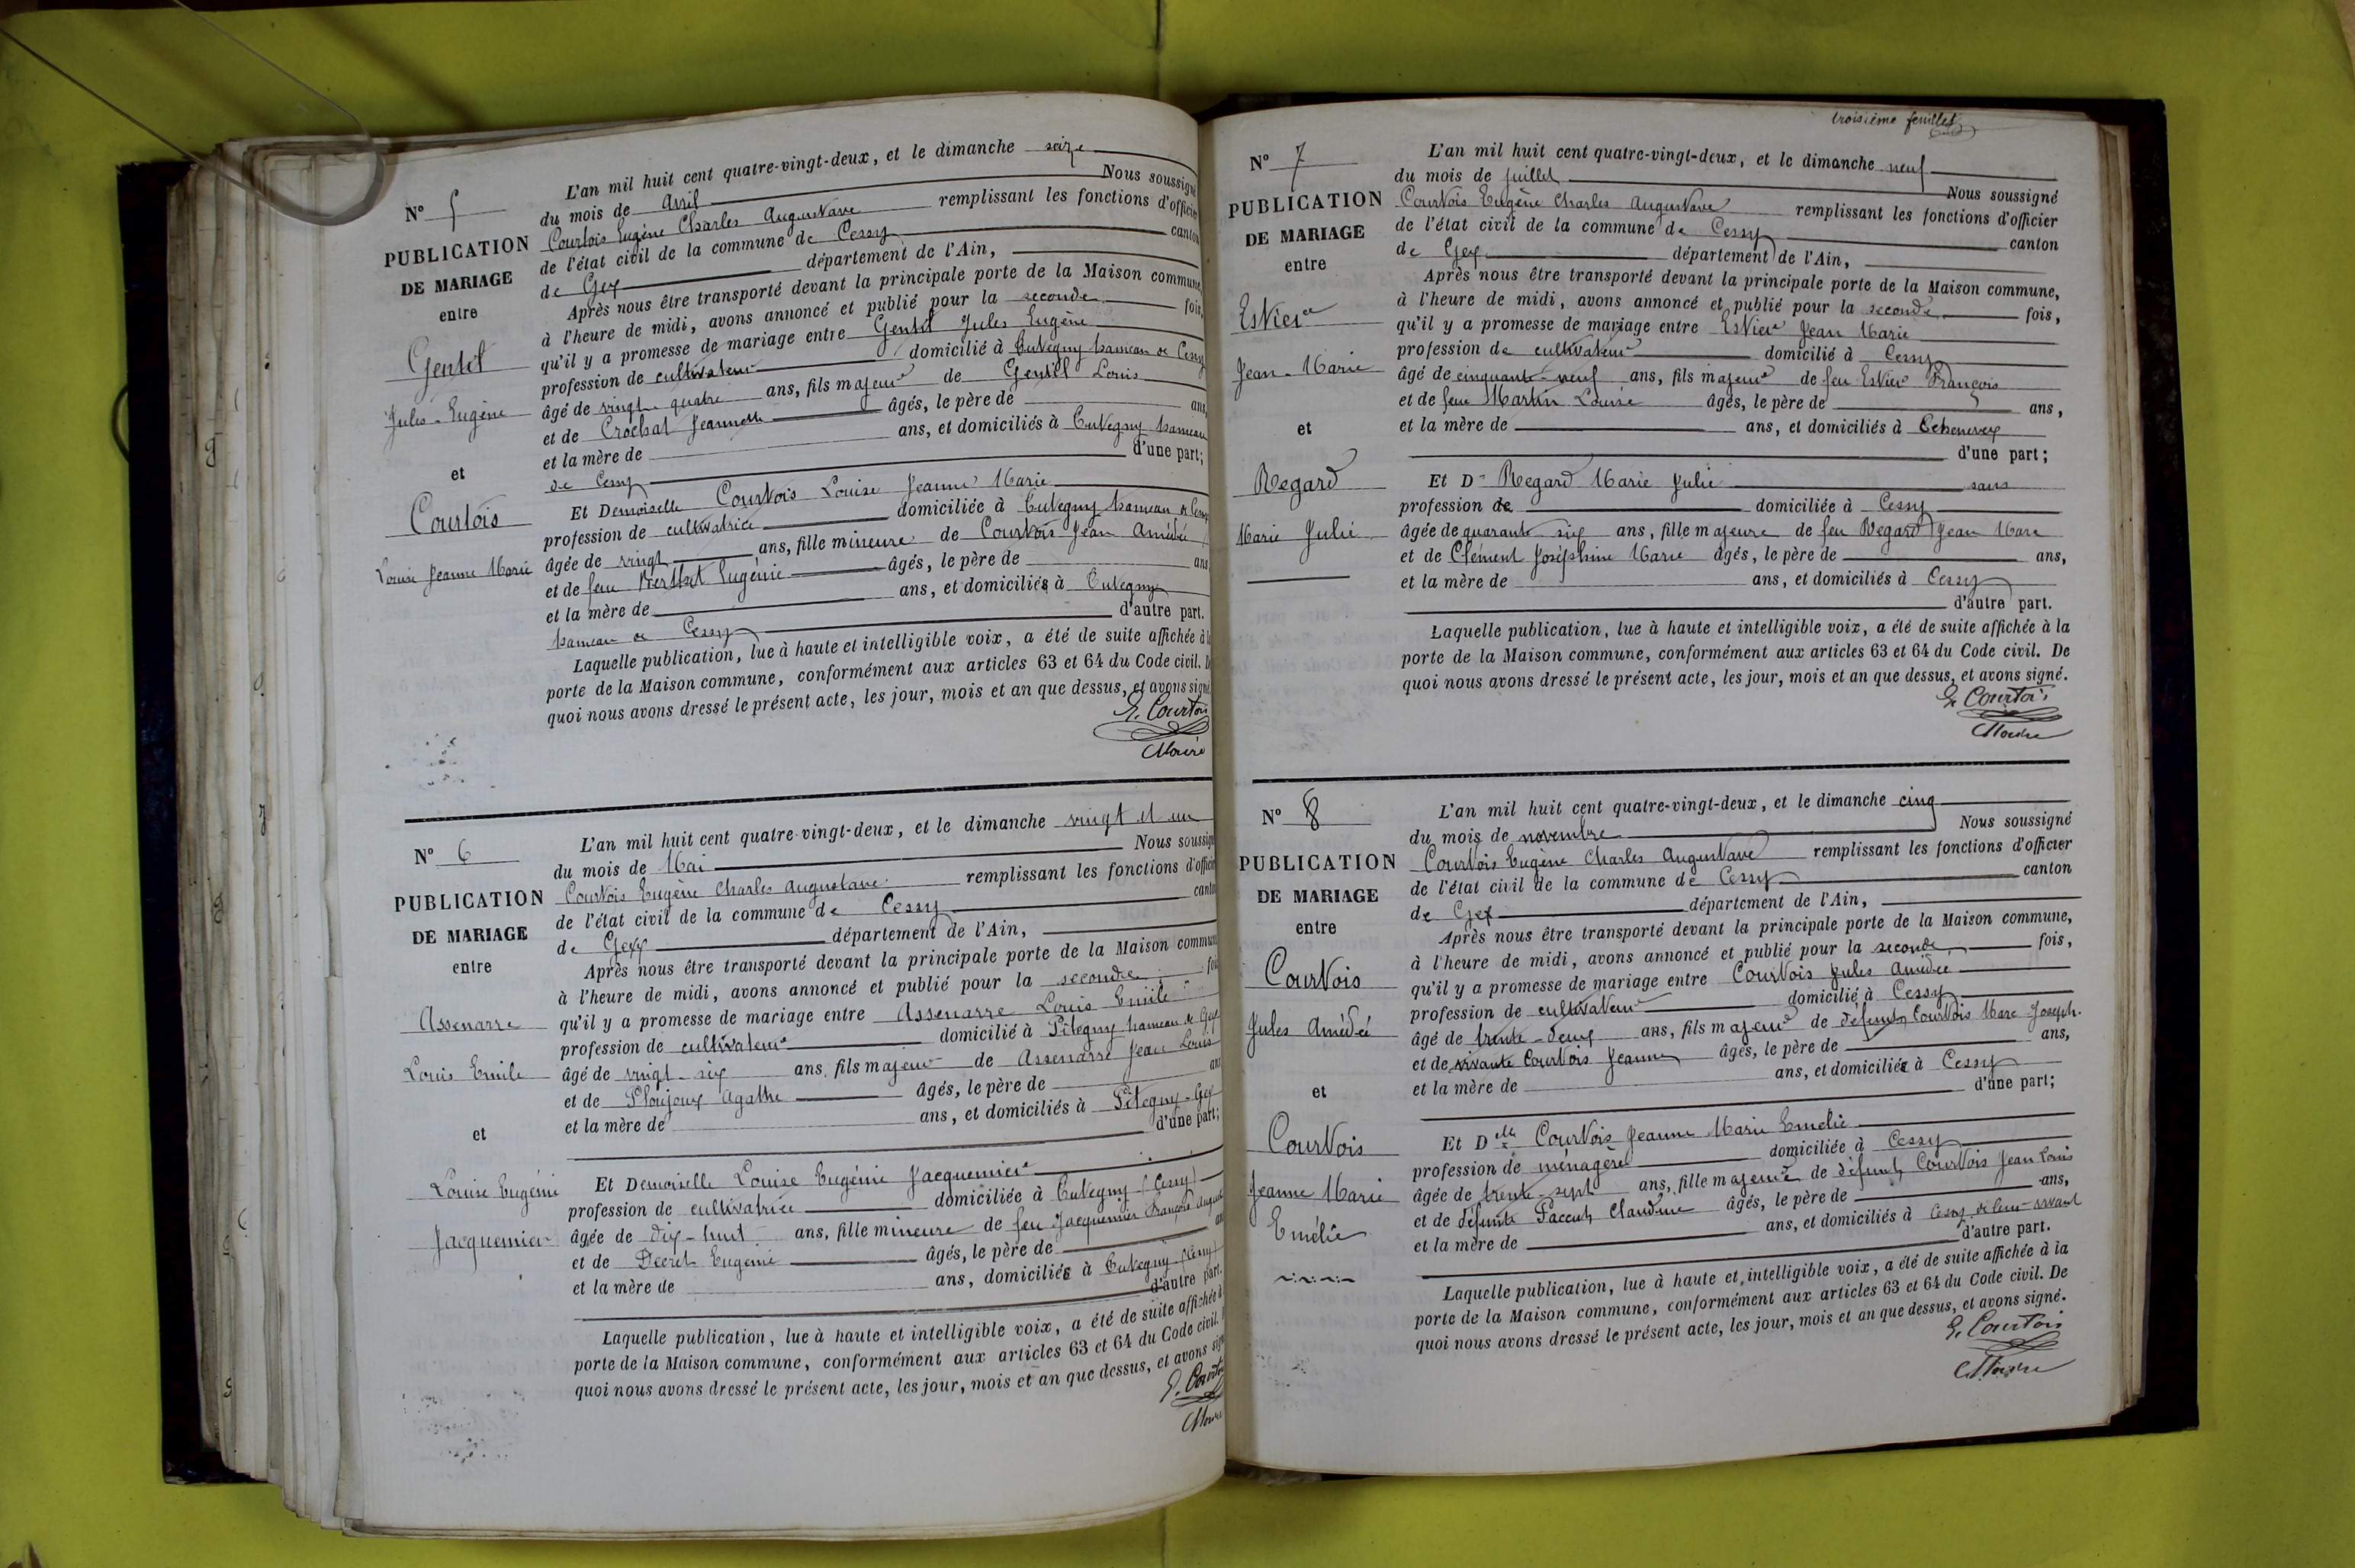 N° 5
PUBLICATION
DE MARIAGE
entre
Gentil
Jules-Eugène
et
Courtois
Louise Jeanne Marie
L'an mil huit cent quatre-vingt-deux, et le dimanche seize
du mois de Avril Nous soussigné
Courtois Eugène Charles Augustave remplissant les fonctions d'officier
de l'état civil de la commune de Cessy canton
de Gex département de l'Ain,
Après nous être transporté devant la principale porte de la Maison commune,
à l'heure de midi, avons annoncé et publié pour la seconde fois,
qu'il y a promesse de mariage entre Gentil Jules Eugène
profession de cultivateur domicilié à Tutegny hameau de Cessy
âgé de vingt-quatre ans, fils majeur de Gentil Louis
et de Crochat Jeannette âgés, le père de ans,
et la mère de ans, et domiciliés à Tutegny hameau
de Cessy d'une part;
Et Demoiselle Courtois Louise Jeanne Marie
profession de cultivatrice domiciliée à Tutegny hameau de Cessy
âgée de vingt ans, fille mineure de Courtois Jean Amédée
et de feue Berthet Eugénie âgés, le père de ans
et la mère de ans, et domiciliés à Tutegny
hameau de Cessy d'autre part.
Laquelle publication, lue à haute et intelligible voix, a été de suite affichée à la
porte de la Maison commune, conformément aux articles 63 et 64 du Code civil. De
quoi nous avons dressé le présent acte, les jour, mois et an que dessus, et avons signé
E. Courtois
Maire
N° 6
PUBLICATION
DE MARIAGE
entre
Assenarre
Louis Emile
et
Louise Eugénie
Jacquemier
L'an mil huit cent quatre-vingt-deux, et le dimanche vingt et un
du mois de Mai Nous soussigné
Courtois Eugène Charles Augustave remplissant les fonctions d'officier
de l'état civil de la commune de Cessy canton
de Gex département de l'Ain,
Après nous être transporté devant la principale porte de la Maison commune
à l'heure de midi, avons annoncé et publié pour la seconde fois
qu'il y a promesse de mariage entre Assenarre Louis Emile
profession de cultivateur domicilié à Pitegny hameau de Gex
âgé de vingt-six ans, fils majeur de Assenarre Jean Louis
et de Ploujoux Agathe âgés, le père de ans
et la mère de ans, et domiciliés à Pitegny-Gex
d'une part;
Et Demoiselle Louise Eugénie Jacquemier
profession de cultivatrice domiciliée à Tutegny (Cessy)
âgée de dix-huit ans, fille mineure de feu Jacquemier François Auguste
et de Decret Eugénie âgés, le père de ans
et la mère de ans, domiciliés à Tutegny (Cessy)
d'autre part.
Laquelle publication, lue à haute et intelligible voix, a été de suite affichée à
porte de la Maison commune, conformément aux articles 63 et 64 du Code civil.
quoi nous avons dressé le présent acte, les jour, mois et an que dessus, et avons signé
E. Courtois
Maire
troisième feuillet
N° 7
PUBLICATION
DE MARIAGE
entre
Estier
Jean-Marie
et
Regard
Marie Julie
L'an mil huit cent quatre-vingt-deux, et le dimanche neuf
du mois de juillet Nous soussigné
Courtois Eugène Charles Augustave remplissant les fonctions d'officier
de l'état civil de la commune de Cessy canton
de Gex département de l'Ain,
Après nous être transporté devant la principale porte de la Maison commune,
à l'heure de midi, avons annoncé et publié pour la seconde fois,
qu'il y a promesse de mariage entre Estier Jean Marie
profession de cultivateur domicilié à Cessy
âgé de cinquante-neuf ans, fils majeur de feu Estier François
et de feue Martin Louise âgés, le père de ans,
et la mère de ans, et domiciliés à Echenevex
d'une part;
Et De Regard Marie Julie sans
profession de domiciliée à Cessy
âgée de quarante-six ans, fille majeure de feu Regard Jean Marc
et de Clément Joséphine Marie âgés, le père de ans,
et la mère de ans, et domiciliés à Cessy
d'autre part.
Laquelle publication, lue à haute et intelligible voix, a été de suite affichée à la
porte de la Maison commune, conformément aux articles 63 et 64 du Code civil. De
quoi nous avons dressé le présent acte, les jour, mois et an que dessus, et avons signé.
E. Courtois
Maire
N° 8
PUBLICATION
DE MARIAGE
entre
Courtois
Jules Amédée
et
Courtois
Jeanne Marie
Emélie
L'an mil huit cent quatre-vingt-deux, et le dimanche cinq
du mois de novembre Nous soussigné
Courtois Eugène Charles Augustave remplissant les fonctions d'officier
de l'état civil de la commune de Cessy canton
de Gex département de l'Ain,
Après nous être transporté devant la principale porte de la Maison commune,
à l'heure de midi, avons annoncé et publié pour la seconde fois,
qu'il y a promesse de mariage entre Courtois Jules Amédée
profession de cultivateur domicilié à Cessy
âgé de trente-deux ans, fils majeur de défunt Courtois Marc Joseph.
et de vivante Courtois Jeanne âgés, le père de ans,
et la mère de ans, et domiciliés à Cessy
d'une part;
Et Delle Courtois Jeanne Marie Emélie
profession de ménagère domiciliée à Cessy
âgée de trente-sept ans, fille majeure de défunt Courtois Jean Louis
et de défunte Paccut Claudine âgés, le père de ans,
et la mère de ans, et domiciliés à Cessy de leur vivant
d'autre part.
Laquelle publication, lue à haute et intelligible voix, a été de suite affichée à la
porte de la Maison commune, conformément aux articles 63 et 64 du Code civil. De
quoi nous avons dressé le présent acte, les jour, mois et an que dessus, et avons signé.
E. Courtois
Maire